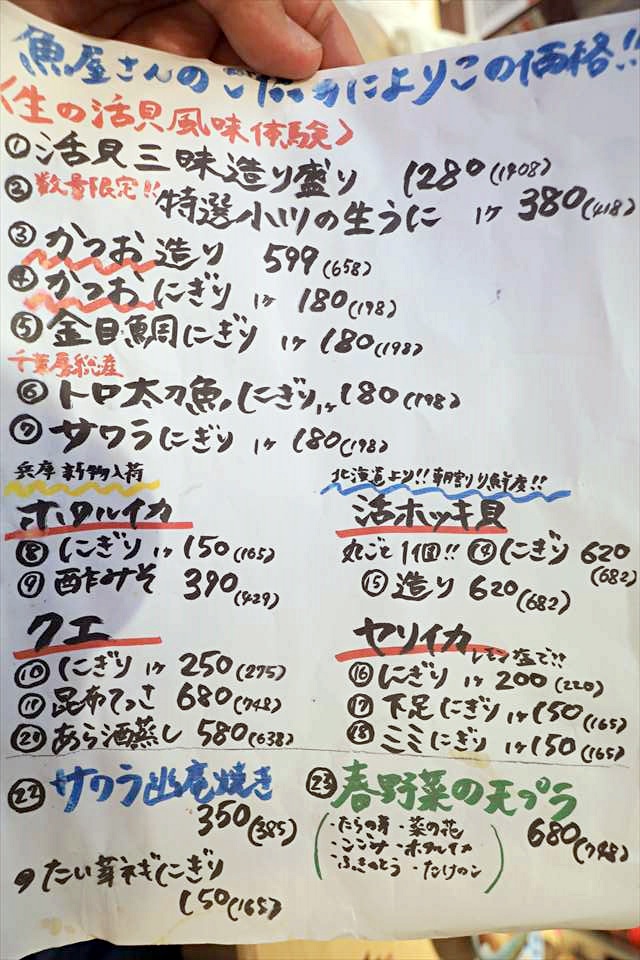 魚屋さんのごかおによりこの価格!!
〈生の活貝風味体験〉
① 活貝三昧造り盛り 1280(1408)
② 数量限定!! 特選小ツの生うに 1ケ 380(418)
③ かつお造り 599(658)
④ かつおにぎり 1ケ 180(198)
⑤ 金目鯛にぎり 1ケ 180(198)
千葉房総産
⑥ トロ太刀魚にぎり 1ケ 180(198)
⑦ サワラにぎり 1ケ 180(198)
兵庫 新物入荷
ホタルイカ
⑧ にぎり 1ケ 150(165)
⑨ 酢みそ 390(429)
クエ
⑩ にぎり 1ケ 250(275)
⑪ 昆布てっさ 680(748)
⑳ あら酒蒸し 580(638)
北海道より!! 朝割り鮮度!!
活ホッキ貝
丸ごと1個!! ⑭ にぎり 620(682)
⑮ 造り 620(682)
ヤリイカ レモン塩で!!
⑯ にぎり 1ケ 200(220)
⑰ 下足にぎり 1ケ 150(165)
⑱ ミミにぎり 1ケ 150(165)
㉒ サワラ幽庵焼き
350(385)
㉓ 春野菜の天プラ
680(748)
・たらの芽 ・菜の花
・こごみ ・ホタルイカ
・ふきのとう ・たけのこ
たい芽ネギにぎり
150(165)